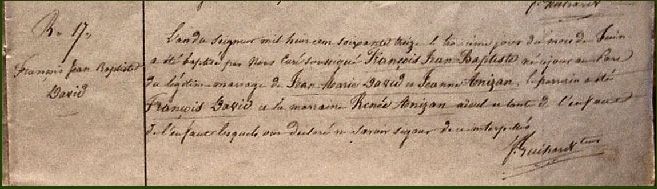 Bn 17n
François Jean Baptiste
David
L'an du Seigneur mil huit cent soixante treize le troisième jour du mois de Juin
a été baptisé par Nous Curé soussigné François Jean Baptiste né ce jour au Parc
du légitime mariage de Jean Marie David et Jeanne Anizan, le parrain a été
François David et la marraine Renée Anizan aïeul et tante de l'enfant
de l'enfant lesquels ont déclaré ne savoir signer de ce interpellés
J. Guihard rteur